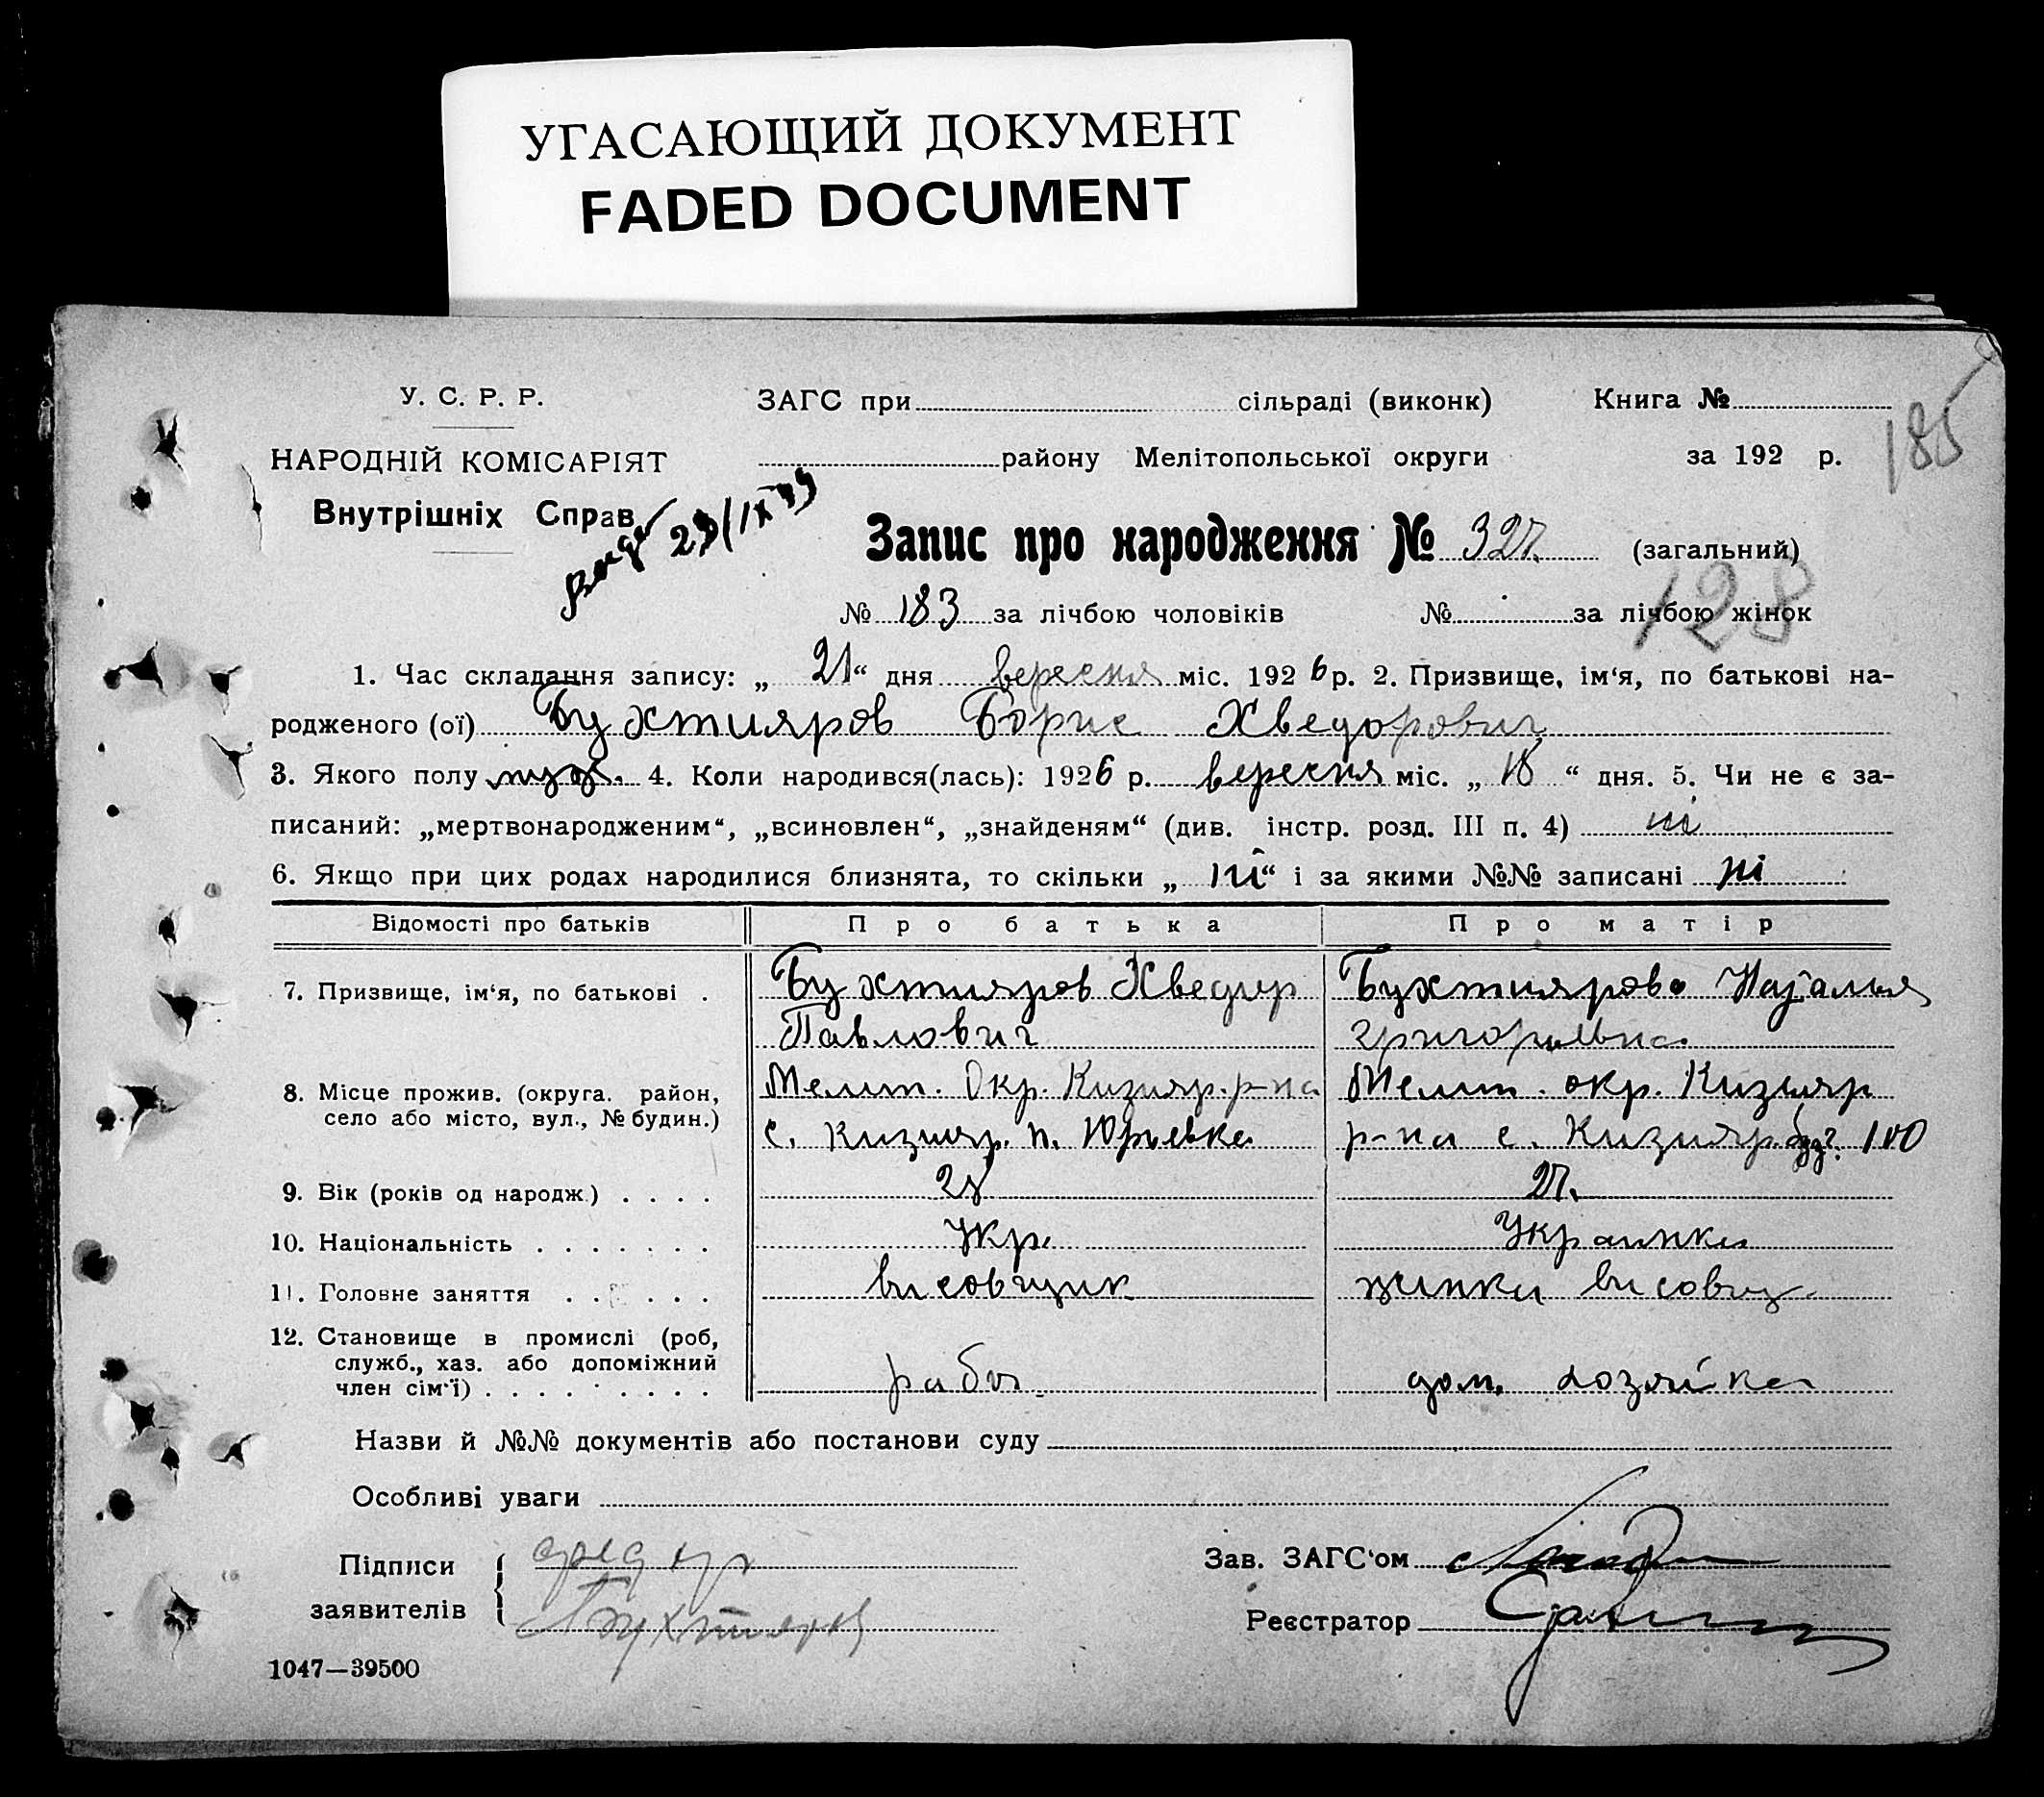 УГАСАЮЩИЙ ДОКУМЕНТ
FADED DOCUMENT
У. С. Р. Р.
ЗАГС при сільраді (виконк)
Книга №
185
НАРОДНІЙ КОМІСАРІЯТ
району Мелітопольської округи
за 192 р.
Внутрішніх Справ
Запис про народження № 327. (загальний)
128
№ 183 за лічбою чоловіків № за лічбою жінок
1. Час складання запису: „ 21“ дня вересня міс. 1926 р. 2. Призвище, ім‘я, по батькові на-
родженого (ої) Бухтияров Борис Хведорович
3. Якого полу муж. 4. Коли народився(лась): 1926 р. вересня міс. „ 18 “ дня. 5. Чи не є за-
писаний: „мертвонародженим“, „всиновлен“, „знайденям“ (див. інстр. розд. III п. 4) ні
6. Якщо при цих родах народилися близнята, то скільки „ ні“ і за якими №№ записані ні
Відомості про батьків Про батька Про матір
7. Призвище, ім‘я, по батькові . Бухтияров Хведор Бухтиярова Наталья
Павлович Григорьевна
8. Місце прожив. (округа. район, Мелит. Окр. Кизияр. р-на Мелит. окр. Кизияр
село або місто, вул., № будин.) с. Кизияр. п. Юрьевка р-на с. Кизияр. 100
9. Вік (років од народж.) . . . . 28 27.
10. Національність . . . . . . . Укр. Украинка
11. Головне заняття . . . . . . висовщик жинка висовщ.
12. Становище в промислі (роб,
служб., хаз. або допоміжний
член сім‘ї) . . . . . . . . . рабоч. дом. хозяйка
Назви й №№ документів або постанови суду
Особливі уваги
Підписи
заявителів Бухтияров
Зав. ЗАГС‘ом
Реєстратор
1047—39500